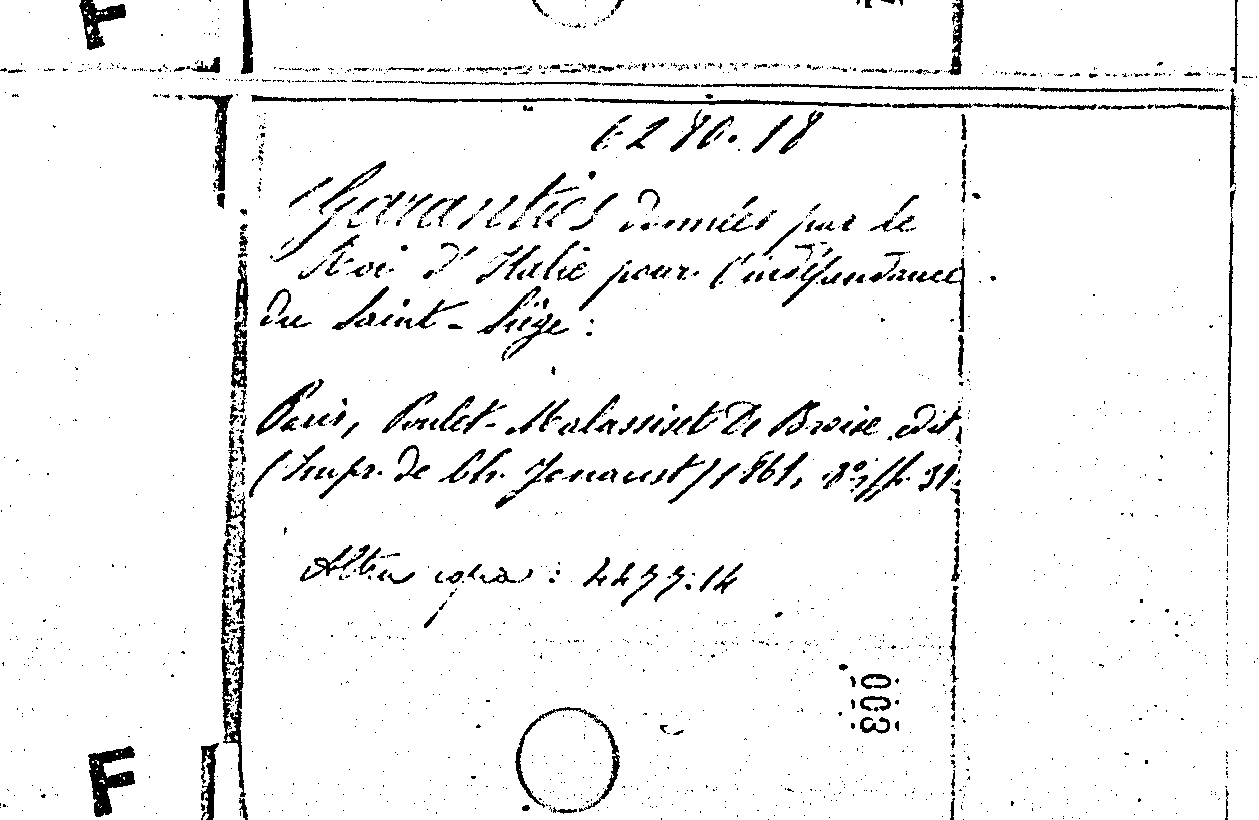 6280.18
Garanties données par le
Roi d'Italie pour l'indépendance
du Saint-Siège.
Paris, Poulet-Malassis et De Broise édit.
(Impr. de Ch. Jouaust) 1861. 8° pp. 31.
Altra copia: 4477.14
008
F